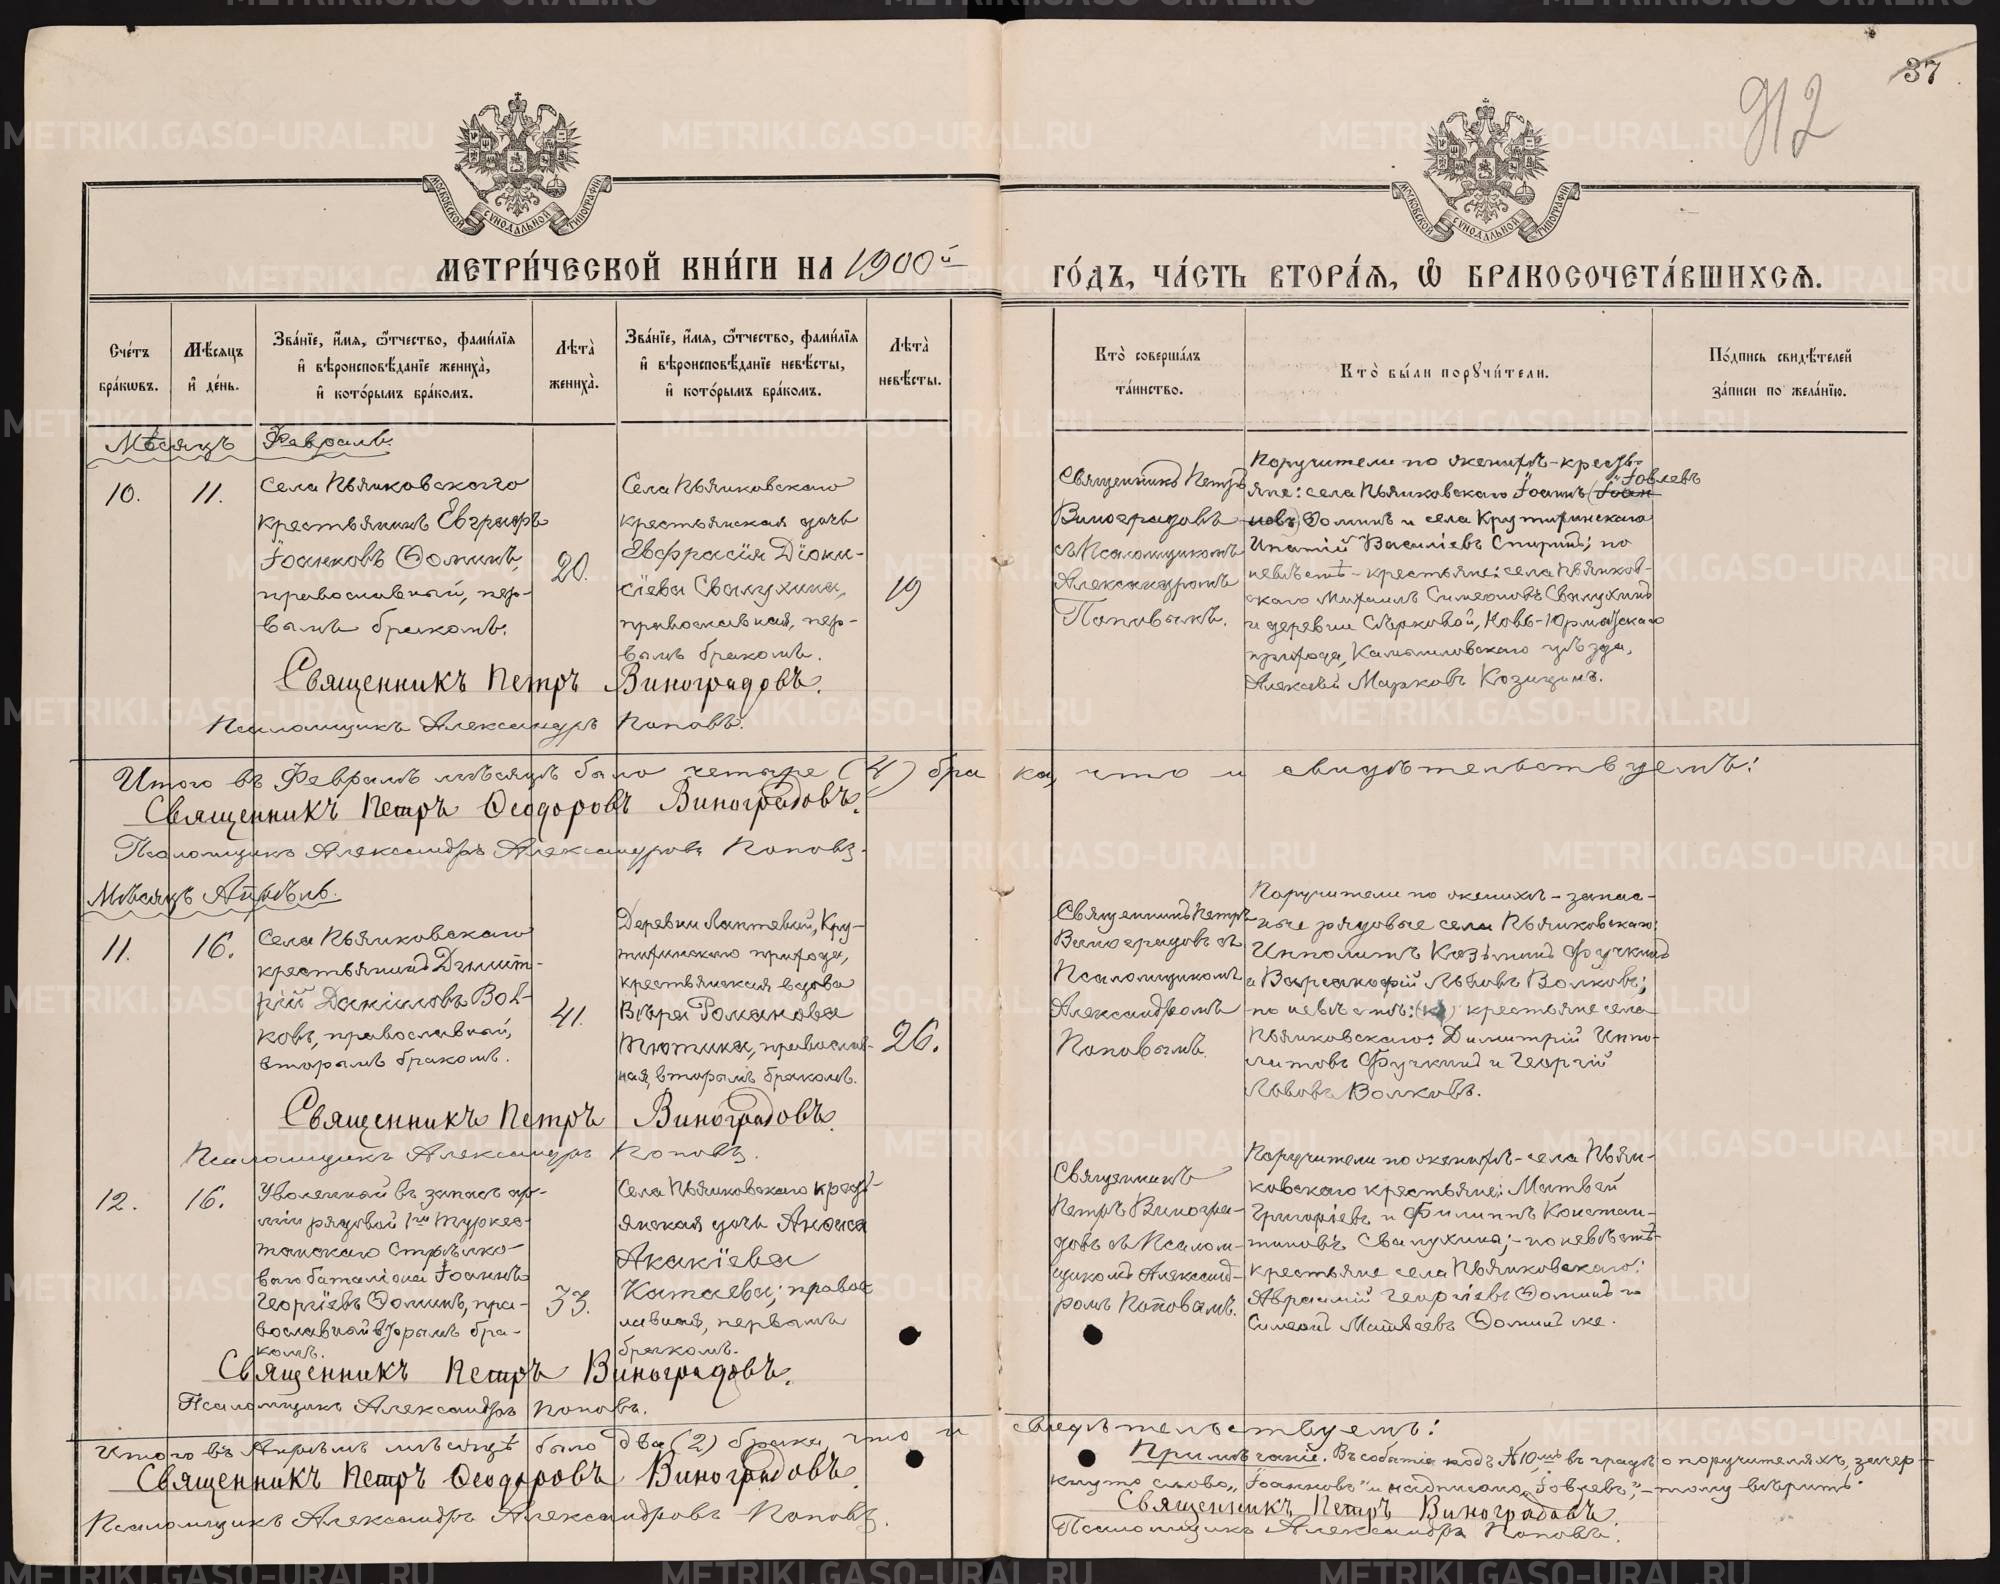 37
912
МОСКОВСКОЙ СѴНОДАЛЬНОЙ ТИПОГРАФІИ
МОСКОВСКОЙ СѴНОДАЛЬНОЙ ТИПОГРАФІИ
МЕТРИ́ЧЕСКОЙ КНИ́ГИ НА 1900й
ГО́ДЪ, ЧА́СТЬ ВТОРА́Я, Ѽ БРАКОСОЧЕТА́ВШИХСЯ.
Сче́тъ бра́кѡвъ.
Мѣ́сяцъ и҆ де́нь.
Зва́нїе, и҆́мя, ѻ҆́тчество, фами́лїя и҆ вѣроисповѣ́данїе жениха̀, и҆ кото́рымъ бра́комъ.
Лѣта̀ жениха̀.
Зва́нїе, и҆́мя, ѻ҆́тчество, фами́лїя и҆ вѣроисповѣ́данїе невѣ́сты, и҆ кото́рымъ бра́комъ.
Лѣта̀ невѣ́сты.
Кто̀ соверша́лъ та́инство.
Кто̀ бы́ли порꙋчи́тели.
По́дпись свидѣ́телей за́писи по жела́нїю.
Мѣсяцъ Февраль.
10.
11.
Села Пьянковскаго
крестьянинъ Евграфъ
Іоанновъ Ѳоминъ,
православный, пер-
вымъ бракомъ.
20.
Села Пьянковскаго
крестьянская дочь
Евфрасія Діони-
сіева Свалухина,
православная, пер-
вымъ бракомъ.
19
Священникъ Петръ
Виноградовъ
съ Псаломщикомъ
Александромъ
Поповымъ.
Поручители по женихѣ - кресть-
яне: села Пьянковскаго Іоаннъ (Іоан- Іовлевъ
новъ) Ѳоминъ и села Крутихинскаго
Ипатій Васильевъ Спиринъ; по
невѣстѣ - крестьяне: села Пьянков-
скаго Михаилъ Симеоновъ Свалухинъ
и деревни Сѣрковой, Ново-Юрмытскаго
прихода, Камышловскаго уѣзда,
Алексѣй Марковъ Козицынъ.
Священникъ Петръ Виноградовъ.
Псаломщикъ Александръ Поповъ.
Итого въ Февралѣ мѣсяцѣ было четыре (4) брака, что и свидѣтельствуемъ:
Священникъ Петръ Ѳеодоровъ Виноградовъ.
Псаломщикъ Александръ Александровъ Поповъ.
Мѣсяцъ Апрѣль.
11.
16.
Села Пьянковскаго
крестьянинъ Димит-
рій Даніиловъ Вол-
ковъ, православный,
вторымъ бракомъ.
41.
Деревни Лаптевой, Кру-
тихинскаго прихода,
крестьянская вдова
Вѣра Романова
Тютина, православ-
ная, вторымъ бракомъ.
26.
Священникъ Петръ
Виноградовъ съ
Псаломщикомъ
Александромъ
Поповымъ.
Поручители по женихѣ - запас-
ные рядовые села Пьянковскаго:
Ипполитъ Козьминъ Фучкинъ
и Варсанофій Львовъ Волковъ;
по невѣстѣ: (к) крестьяне села
Пьянковскаго: Димитрій Иппо-
литовъ Фучкинъ и Георгій
Львовъ Волковъ.
Священникъ Петръ Виноградовъ.
Псаломщикъ Александръ Поповъ.
12.
16.
Уволенный въ запасъ ар-
міи рядовой 1го Туркес-
танскаго Стрѣлко-
ваго баталіона Іоаннъ
Георгіевъ Ѳоминъ, пра-
вославный, вторымъ бра-
комъ.
33.
Села Пьянковскаго кресть-
янская дочь Анѳиса
Акакіева
Катаева; правос-
лавная, первымъ
бракомъ.
Священникъ
Петръ Виногра-
довъ съ Псалом-
щикомъ Александ-
ромъ Поповымъ.
Поручители по женихѣ - села Пьян-
ковскаго крестьяне: Матвѣй
Григоріевъ и Филиппъ Констан-
тиновъ Свалухины; - по невѣстѣ -
крестьяне села Пьянковскаго:
Авраамій Георгіевъ Ѳоминъ и
Симеонъ Матвѣевъ Ѳоминъ же.
Священникъ Петръ Виноградовъ.
Псаломщикъ Александръ Поповъ.
Итого въ Апрѣлѣ мѣсяцѣ было два (2) брака, что и свидѣтельствуемъ:
Священникъ Петръ Ѳеодоровъ Виноградовъ.
Псаломщикъ Александръ Александровъ Поповъ.
Примѣчаніе. Въ событіи подъ №10мъ въ графѣ о поручителяхъ, зачер-
кнуто слово „Іоанновъ" и надписано „Іовлевъ", - тому вѣрить.
Священникъ Петръ Виноградовъ.
Псаломщикъ Александръ Поповъ.
METRIKI.GASO-URAL.RU